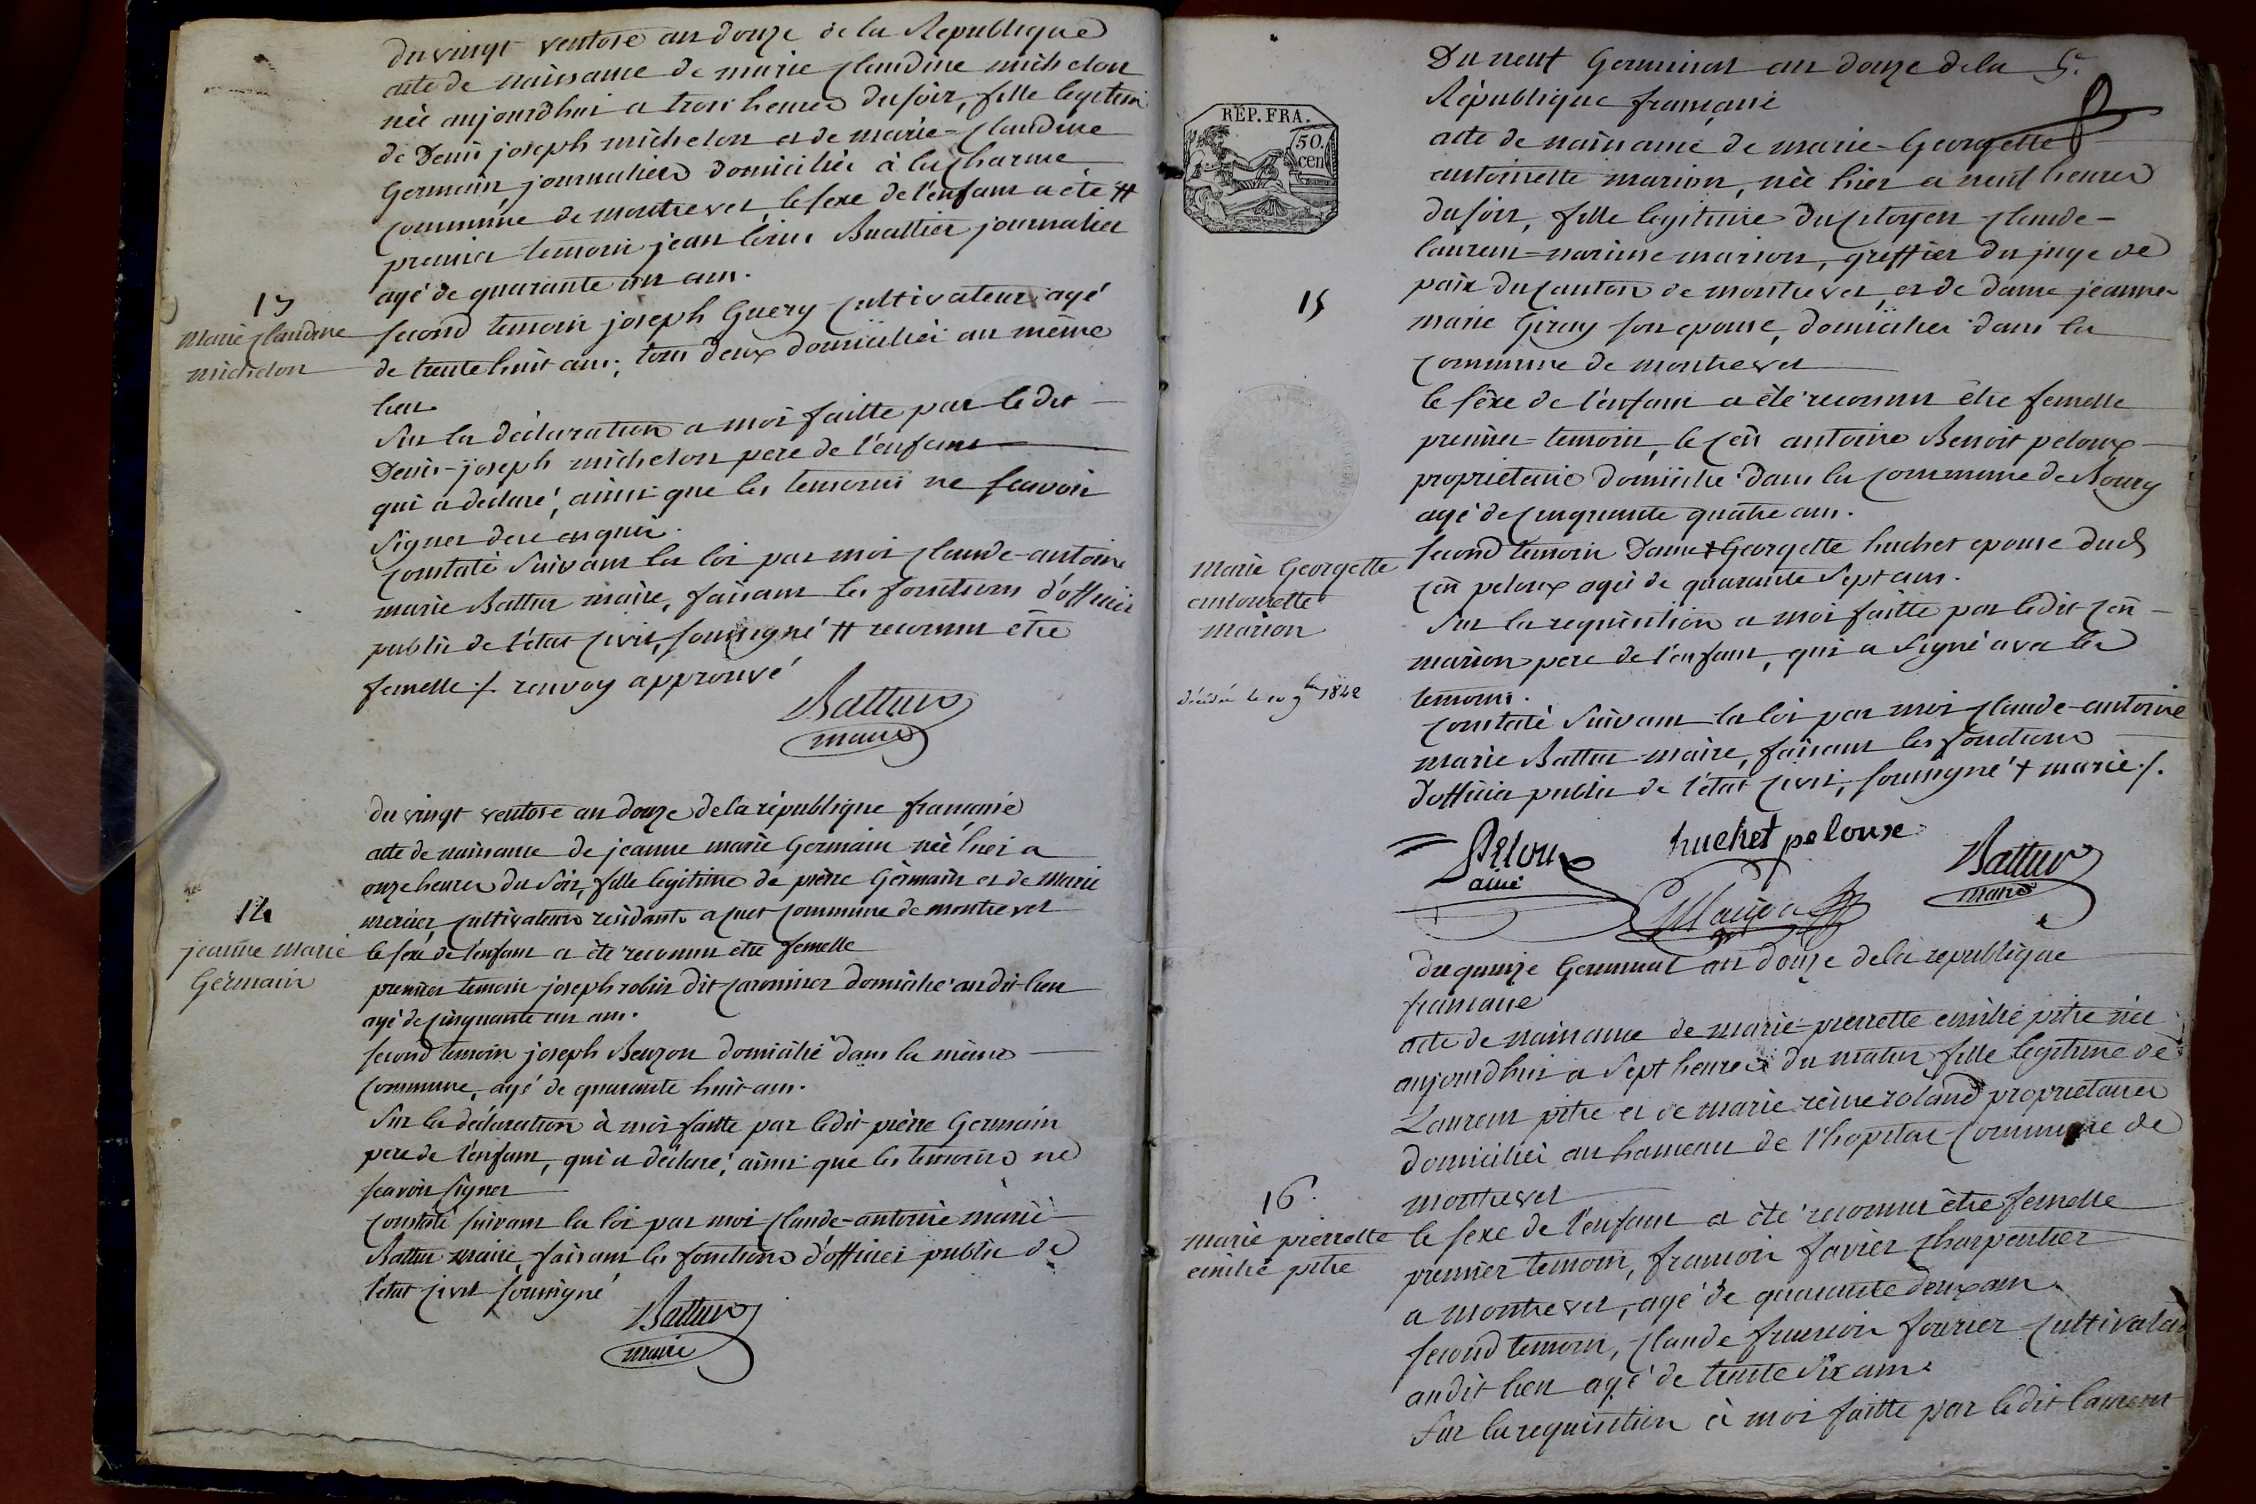 du vingt ventose an douze de la Republique
acte de naissance de marie claudine michelon
née aujourdhui a trois heures du soir, fille legitim
de Denis joseph michelon et de marie-claudine
Germain journaliers domiciliés à la charme
commune de montrevel, le sexe de l'enfant a été #
premier temoin jean louis Buattier journalier
agé de quarante un ans.
second temoin joseph Guery cultivateur agé
de trente huit ans; tous deux domiciliés au même
lieu.
sur la déclaration a moi faitte par le dit
Denis-joseph michelon pere de l'enfant
qui a déclaré, ainsi que les temoins ne scavoir
signer de ce enquis.
constaté suivant la loi par moi claude-antoine
marie Battur maire, faisant les fonctions d'officier
public de l'état civil, soussigné # reconnu être
femelle ./. renvoy approuvé
Battur
maire
13
marie claudine
michelon
du vingt ventose an douze de la république francaise
acte de naissance de jeanne marie Germain née hier a
onze heures du soir, fille legitime de pierre Germain et de marie
mercier, cultivateurs résidants a cuet commune de montrevel
le sexe de l'enfant a été reconnu etre femelle
premier temoin joseph robin dit domicilié au dit lieu
agé de cinquante un ans.
second temoin joseph Beuzon domicilié dans la même
commune, agé de quarante huit ans.
sur la déclaration à moi faitte par ledit pierre Germain
pere de l'enfant, qui a déclaré, ainsi que les temoins ne
scavoir signer
constaté suivant la loi par moi claude-antoine marie
Battur maire, faisant les fonctions d'officier public de
l'état civil soussigné
Battur
maire
14
jeanne marie
Germain
Du neuf Germinal an douze de la
République francaise
acte de naissance de marie-Georgette
antoinette marion, née hier a neuf heures
du soir, fille legitime du citoyen claude-
laurent-narcisse marion, greffier du juge de
paix du canton de montrevel, et de dame jeanne-
marie Giroy son epouse, domiciliés dans la
commune de montrevel
le sexe de l'enfant a été reconnu être femelle
premier temoin, le cen antoine Benoit peloux
proprietaire domicilié dans la commune de Bourg
agé de cinquante quatre ans.
second temoin Dame + Georgette huchet epouse dud
cen peloux agée de quarante sept ans.
sur la requisition a moi faitte par ledit cen
marion pere de l'enfant, qui a signé avec les
temoins.
constaté suivant la loi par moi claude-antoine
marie Battur maire, faisant les fonctions
d'officier public de l'état civil, soussigné + marie ./.
Peloux
ainé
huchet peloux
Marion
Battur
maire
REP. FRA.
50.
cen
15
marie Georgette
antoinette
marion
décédée le 10 9bre 1842
du quinze Germinal an douze de la republique
francaise
acte de naissance de marie-pierrette emilie pitre née
aujourdhui a sept heures du matin fille legitime de
Laurent pitre et de marie reine roland proprietaires
domiciliés au hameau de l'hopital commune de
montrevel
le sexe de l'enfant a été reconnu être femelle
premier temoin, francois favier charpentier
a montrevel, agé de quarante deux ans.
second temoin, claude francois fourier cultivateur
au dit lieu agé de trente six ans.
sur la requisition à moi faitte par ledit laurent
16
marie pierrette
emilie pitre